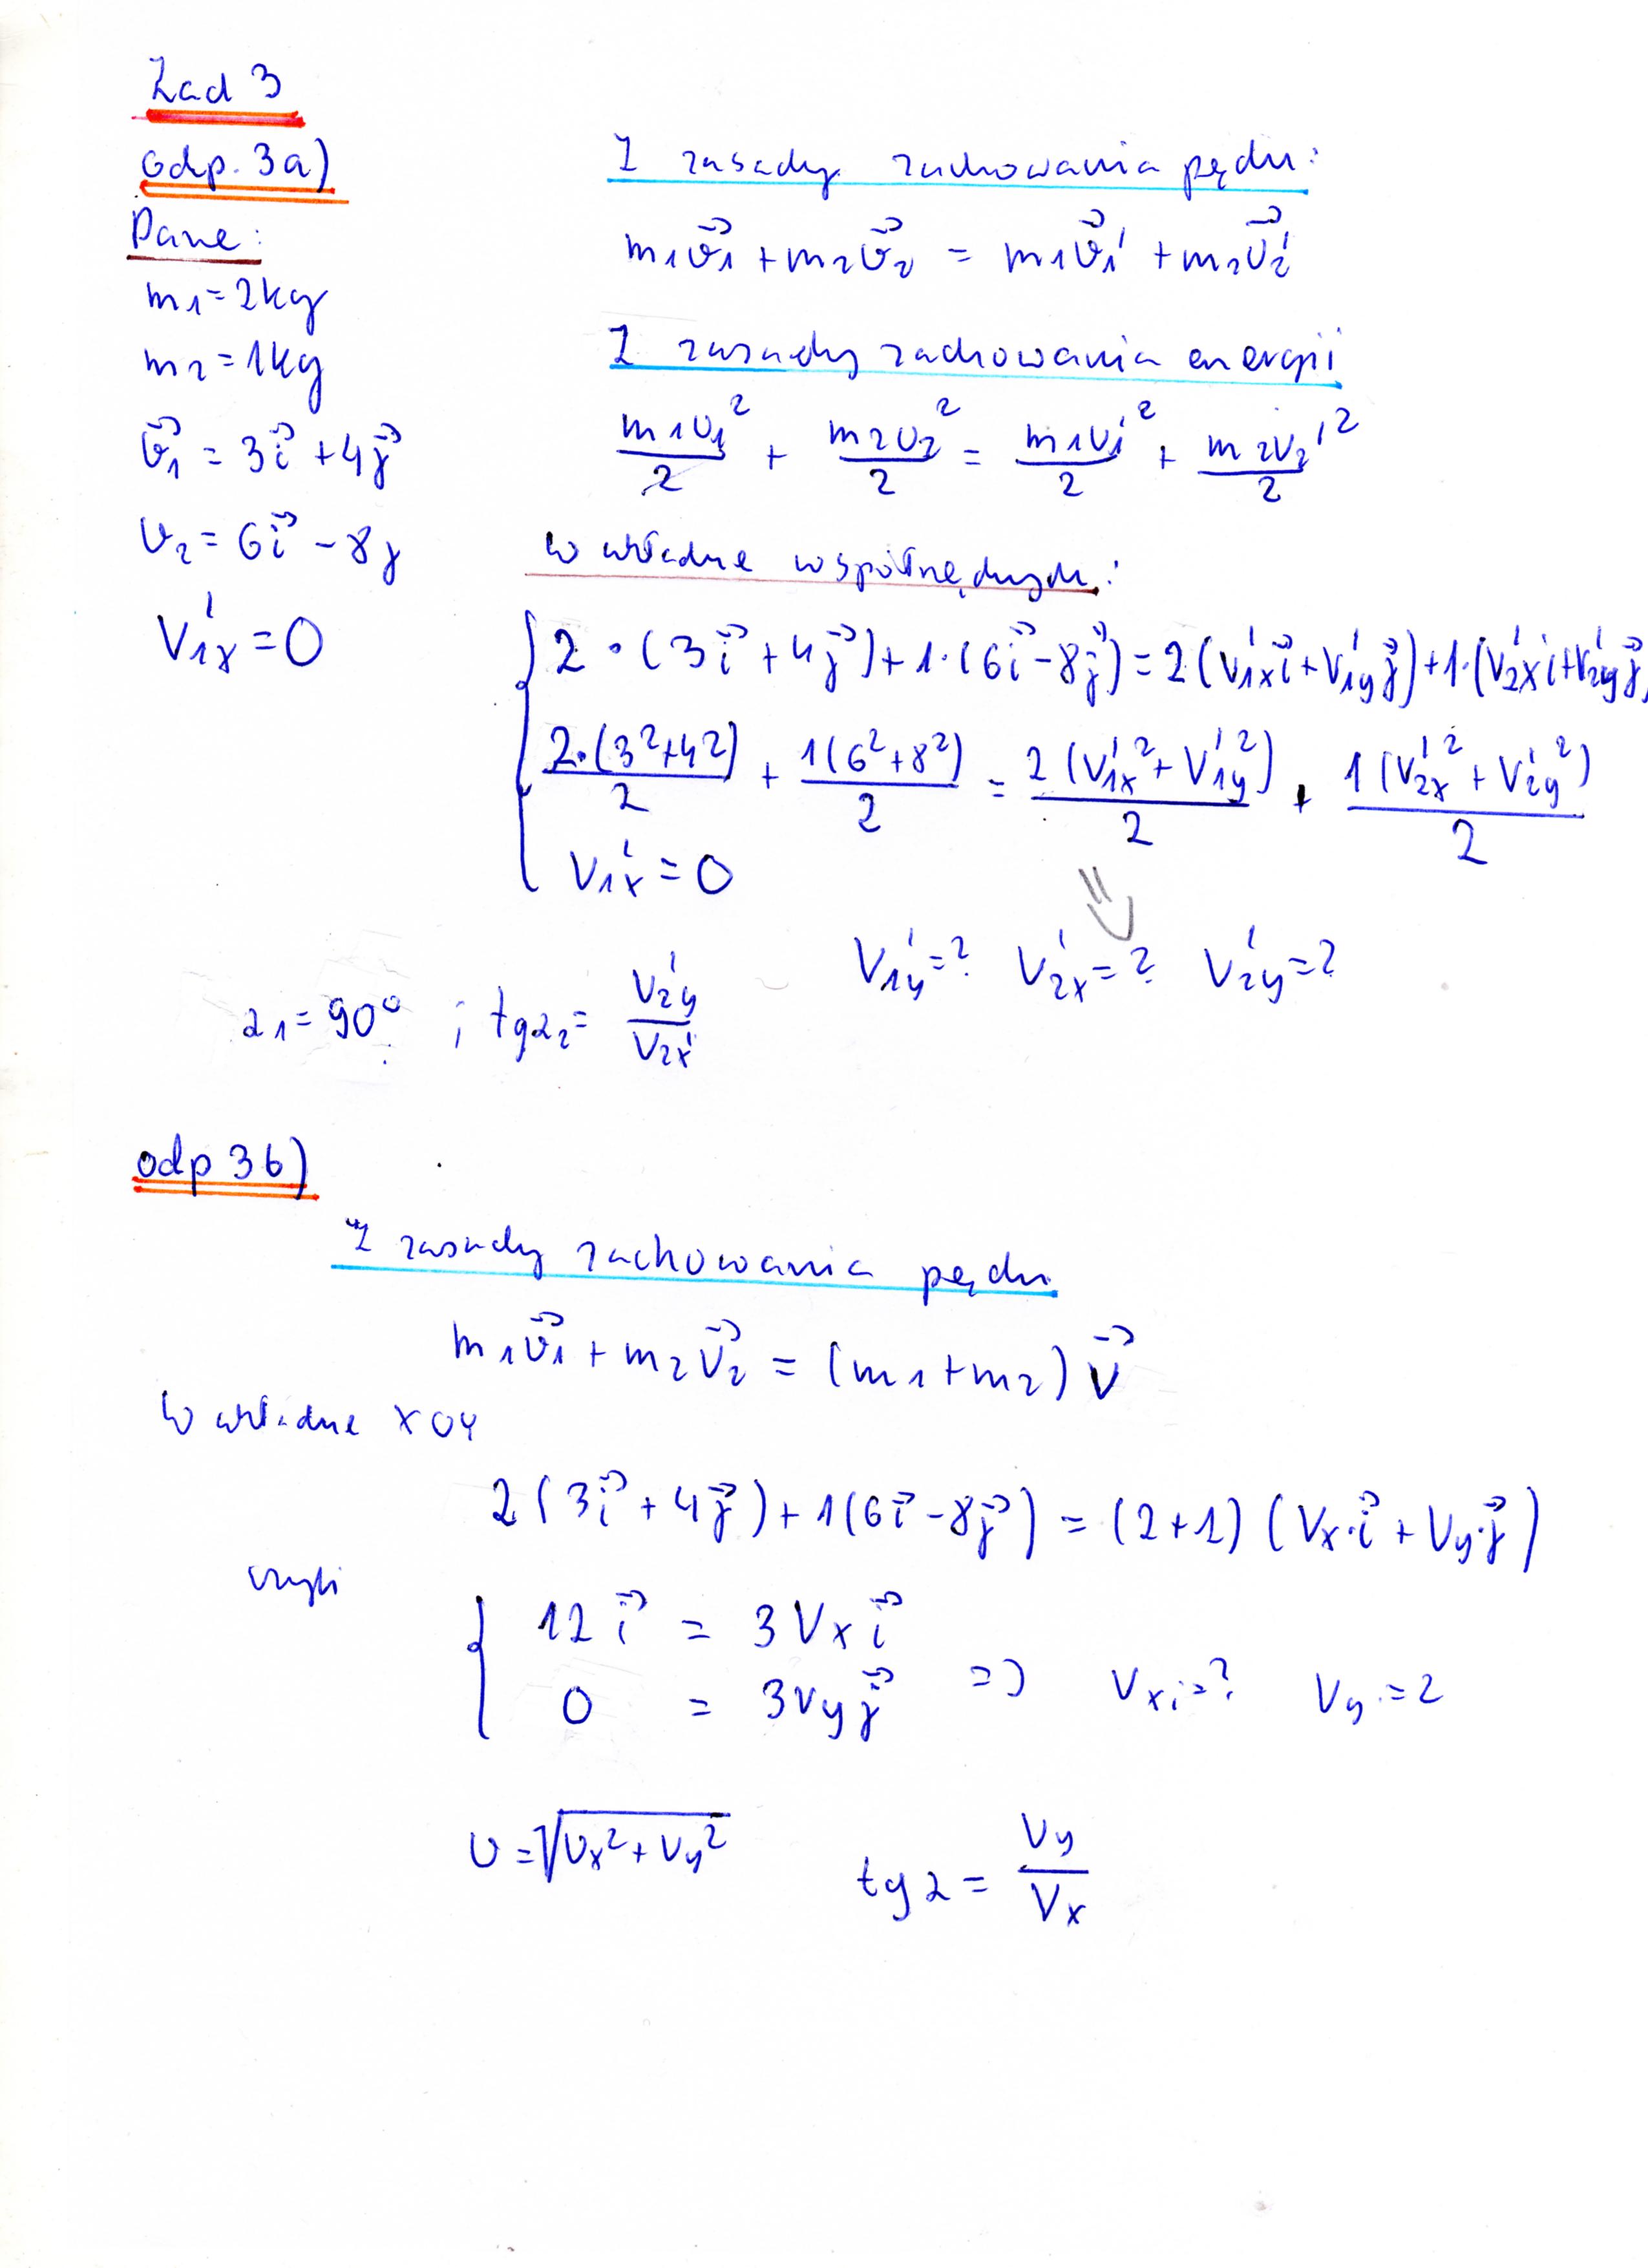 Zad 3
odp. 3a)
Dane:
m₁=2kg
m₂=1kg
v⃗₁ = 3i⃗ +4j⃗
v₂ = 6i⃗ -8j
V₁ₓ' = 0
Z zasady zachowania pędu:
m₁v⃗₁ + m₂v⃗₂ = m₁v⃗₁' + m₂v⃗₂'
Z zasady zachowania energii
m₁v₁²/2 + m₂v₂²/2 = m₁v₁'²/2 + m₂v₂'²/2
w układzie współrzędnych:
2 · (3i⃗ + 4j⃗) + 1·(6i⃗ - 8j⃗) = 2(V₁ₓ'i⃗ + V₁y'j⃗) + 1·(V₂ₓ'i + V₂y'j⃗)
2·(3²+4²)/2 + 1(6²+8²)/2 = 2(V₁ₓ'² + V₁y'²)/2 + 1(V₂ₓ'² + V₂y'²)/2
V₁ₓ' = 0
V₁y' = ? V₂ₓ' = ? V₂y' = ?
α₁ = 90° ; tgα₂ = V₂y'/V₂ₓ'
odp 3b)
Z zasady zachowania pędu
m₁v⃗₁ + m₂v⃗₂ = (m₁+m₂) v⃗
W układzie XOY
2(3i⃗ + 4j⃗) + 1(6i⃗ - 8j⃗) = (2+1) (Vₓ·i⃗ + Vy·j⃗)
czyli
12 i⃗ = 3Vₓ i⃗
0 = 3Vy j⃗ => Vₓ; = ? Vy = ?
v = √(vₓ² + vy²) tgα = Vy/Vₓ